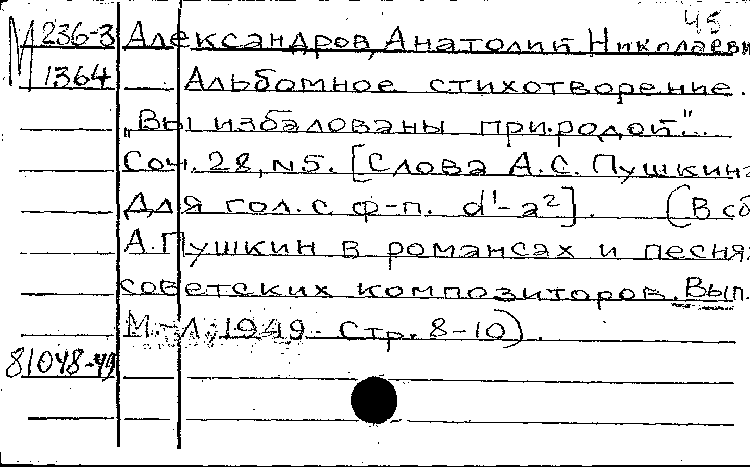 45
М 236-3 Александров, Анатолий Николаеви
1364 Альбомное стихотворение.
„Вы избалованы природой"...
Соч. 28, N5. [Слова А.С. Пушкина
Для гол. с ф-п. d¹-a²]. (В сб
А. Пушкин в романсах и песнях
советских композиторов. Вып.
М.-Л. 1949. Стр. 8-10).
81048-49